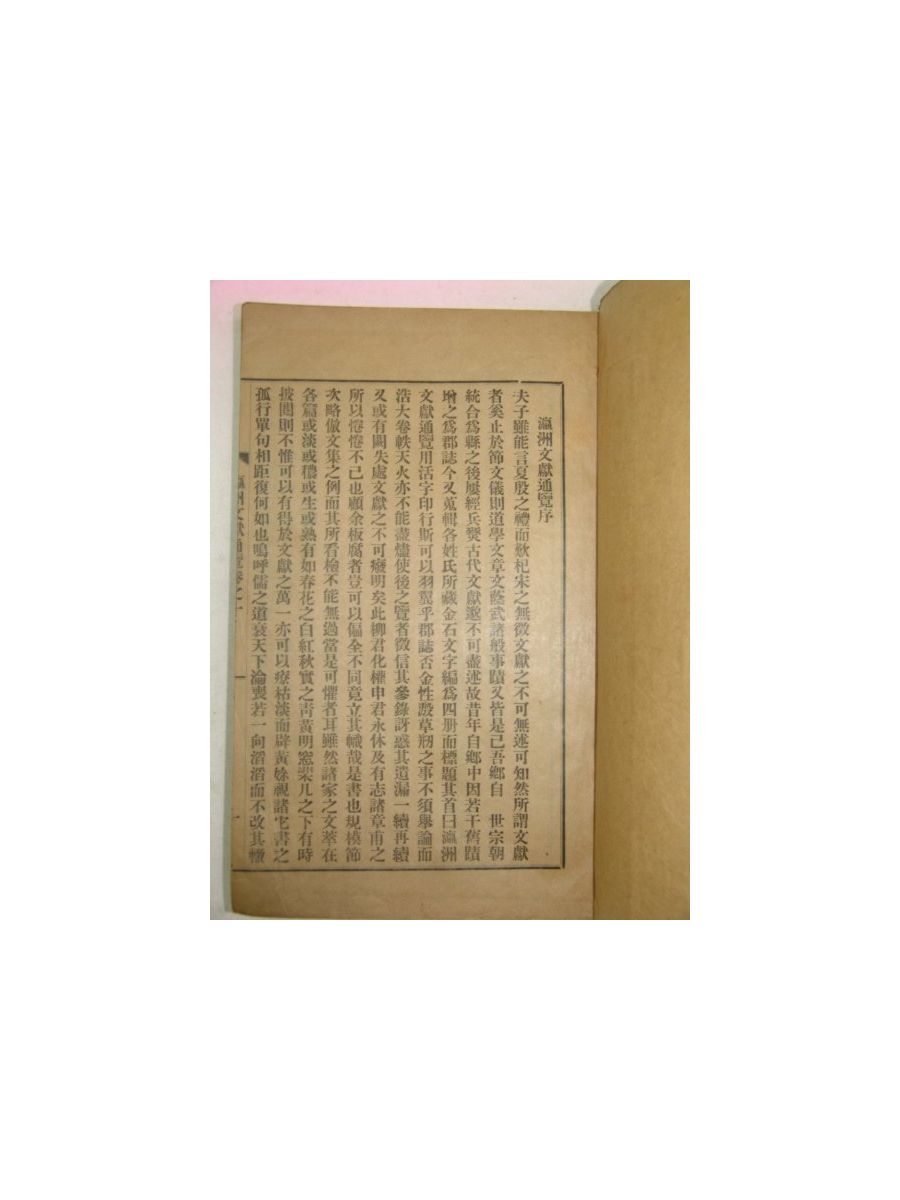 瀛洲文獻通覽序
夫子雖能言夏殷之禮而歎杞宋之無徵文獻之不可無述可知然所謂文獻
者奚止於節文儀則道學文章文蔭武諸般事蹟又皆是已吾鄉自 世宗朝
統合爲縣之後屢經兵燹古代文獻邈不可盡述故昔年自鄉中因若干舊蹟
增之爲郡誌今又蒐輯各姓氏所藏金石文字編爲四册而標題其首曰瀛洲
文獻通覽用活字印行斯可以羽翼乎郡誌否金性激草刱之事不須舉論而
浩大卷帙天火亦不能盡燼使後之覽者徵信其參錄訝惑其遺漏一續再續
又或有闕失處文獻之不可廢明矣此柳君化權申君永休及有志諸章甫之
所以惓惓不已也顧余板腐者豈可以偏全不同竟立其幟哉是書也規模節
次略倣文集之例而其所看檢不能無過當是可懼者耳雖然諸家之文萃在
各篇或淡或穠或生或熟有如春花之白紅秋實之靑黃明窓棐几之下有時
披閱則不惟可以有得於文獻之萬一亦可以療枯淡而嬖黃婾視諸它書之
孤行單句相距復何如也嗚呼儒之道衰天下淪喪若一向滔滔而不改其轍
瀛洲文獻通覽卷之一
一